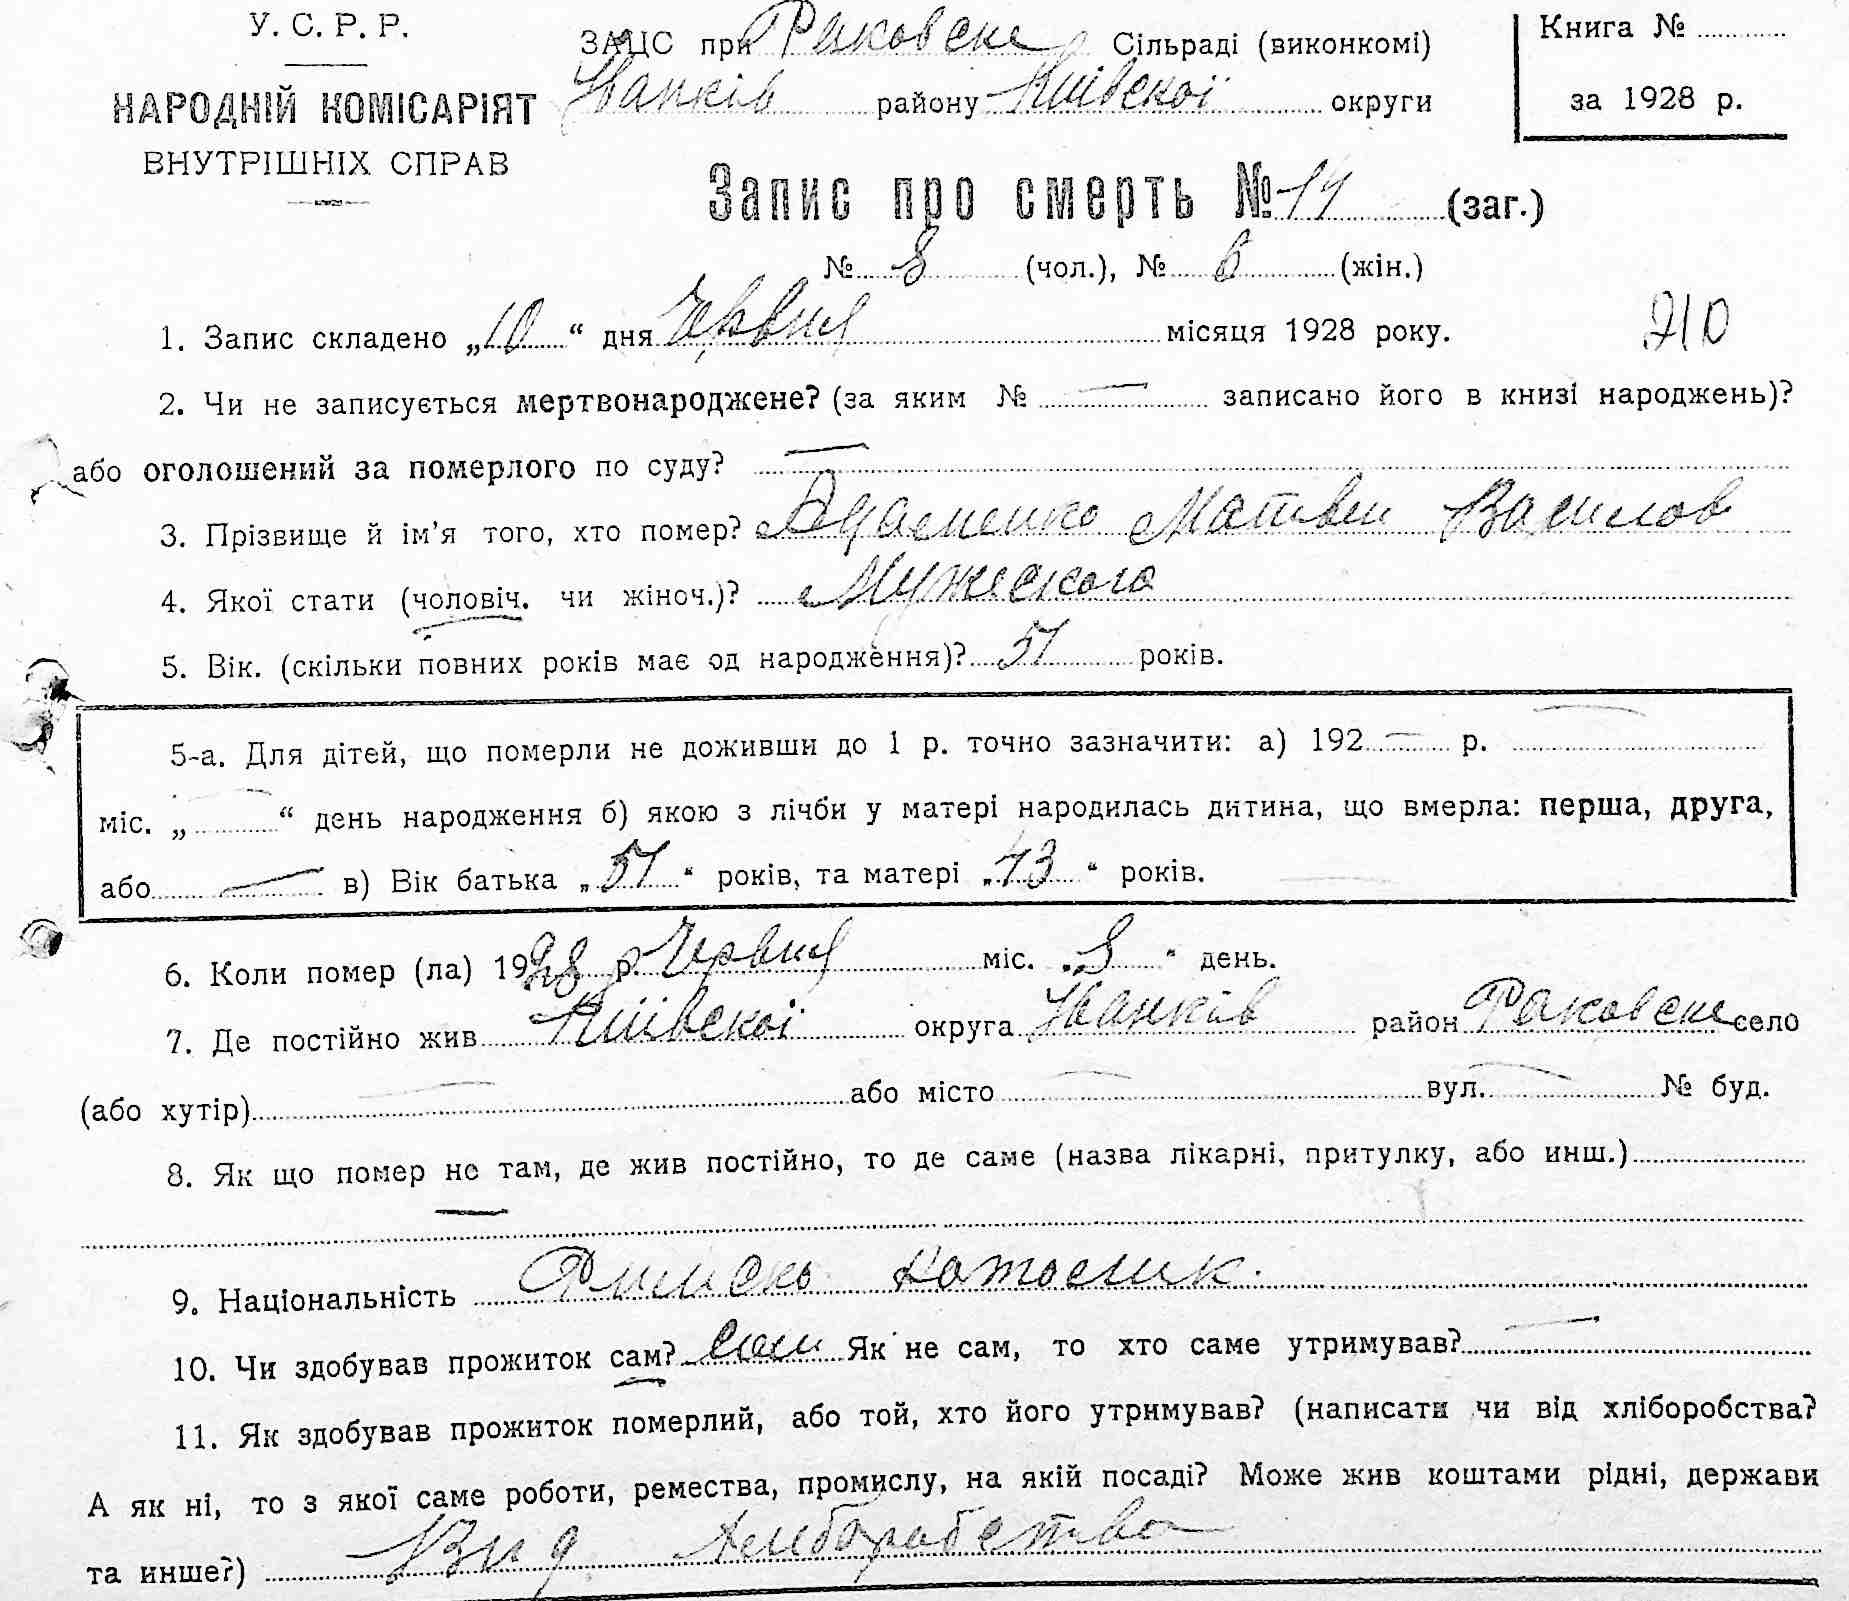 У. С. Р. Р.
НАРОДНІЙ КОМІСАРІЯТ
ВНУТРІШНІХ СПРАВ
ЗАЦС при Раковске Сільраді (виконкомі)
Іванків району Київскої округи
Книга №
за 1928 р.
Запис про смерть № 14 (заг.)
№ 8 (чол.), № 6 (жін.)
1. Запис складено „10“ дня Червня місяця 1928 року.
210
2. Чи не записується мертвонароджене? (за яким № — записано його в книзі народжень)?
або оголошений за померлого по суду? —
3. Прізвище й ім'я того, хто помер? Адаменко Матвеи Василов
4. Якої стати (чоловіч. чи жіноч.)? Мужеского
5. Вік. (скільки повних років має од народження)? 51 років.
5-а. Для дітей, що померли не доживши до 1 р. точно зазначити: а) 192 — р. —
міс. „—“ день народження б) якою з лічби у матері народилась дитина, що вмерла: перша, друга,
або — в) Вік батька „51“ років, та матері „43“ років.
6. Коли помер (ла) 1928 р. Червня міс. „8“ день.
7. Де постійно жив Київскої округа Іванків район Раковске село
(або хутір) — або місто — вул. — № буд.
8. Як що помер не там, де жив постійно, то де саме (назва лікарні, притулку, або инш.)
9. Національність Римско католик.
10. Чи здобував прожиток сам? сам Як не сам, то хто саме утримував? —
11. Як здобував прожиток померлий, або той, хто його утримував? (написати чи від хліборобства?
А як ні, то з якої саме роботи, ремества, промислу, на якій посаді? Може жив коштами рідні, держави
та инше?) Вид хлиборобства